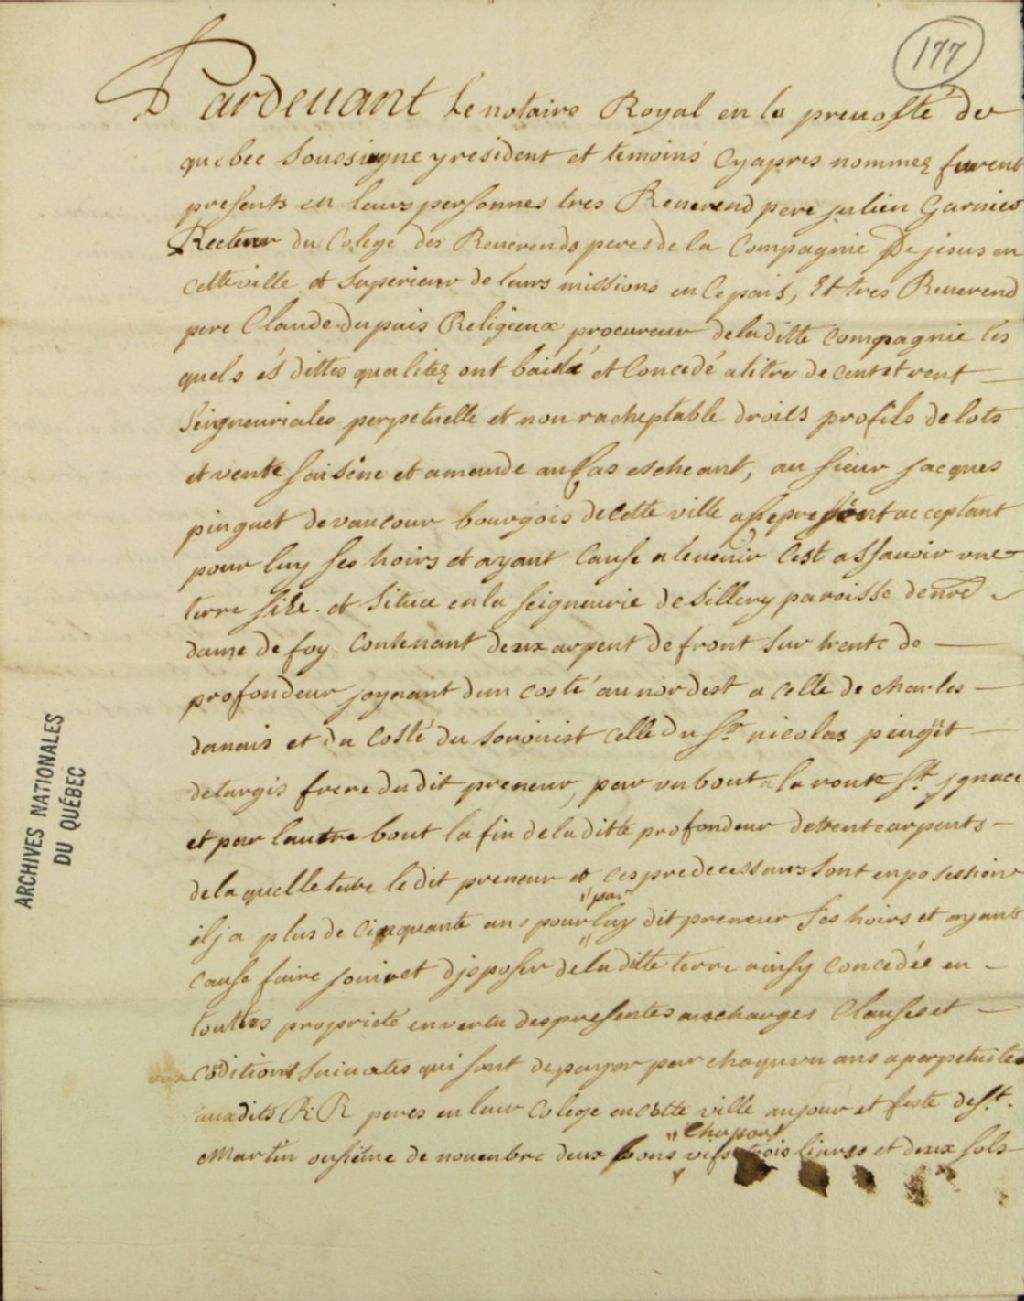 177
Pardeuant Le notaire Royal en la preuosté de
quebec Soussigne y resident et temoins Cyapres nommez furent
presents en leurs personnes tres Reuerend pere julien Garnier
Recteur du Colege des Reuerends peres de la Compagnie De jesus en
cette ville et Superieur de leurs missions en Ce païs, Et tres Reuerend
pere Claude Dupuis Religieux procureur de laditte Compagnie les
quels és dittes qualitez ont baillé et Concedé a titre de cens et rent
Seigneuriales perpetuelle et non racheptable droits profits de lots
et vente saisene et amande au Cas escheant, au sieur jacques
pinguet de vaucour bourgois de Cette ville a ce present acceptant
pour luy ses hoirs et ayant Cause a l'euenir Cest assauoir une
terre size et Situee en la seigneurie de Sillery paroisse de nre
dame de foy Contenant deux arpent de front Sur trente de
profondeur joynant dun costé au nordest a celle de charles
danais et du Costé du sorouist celle du Sr. nicolas pinguet
detargis frere dudit preneur, par un bout a la route St. jgnace
et par lautre bout la fin de laditte profondeur de trente arpents
de la quelle terre le dit preneur et ces predecesseurs sont en possession
il j a plus de Cinquante ans pour "par" luy dit preneur ses hoirs et ayants
cause faire jouir et disposer de laditte terre ainsy concedée en
touttes proprieté en vertu des presentes aux charges Clauses et
coditions Suiuates qui sont de payer par chaqu'un ans a perpetuité
auxdits R R peres en leur Colege en cette ville au jour et feste de St.
Martin onsiéme de nouembre deux bons vifs "Chapons trois liures et deux sols
ARCHIVES NATIONALES
DU QUÉBEC